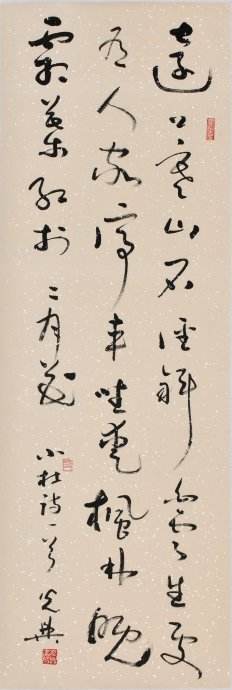 遠上寒山石徑斜白雲生處
有人家停車坐愛楓林晚
霜葉紅於二月花
小杜詩一首